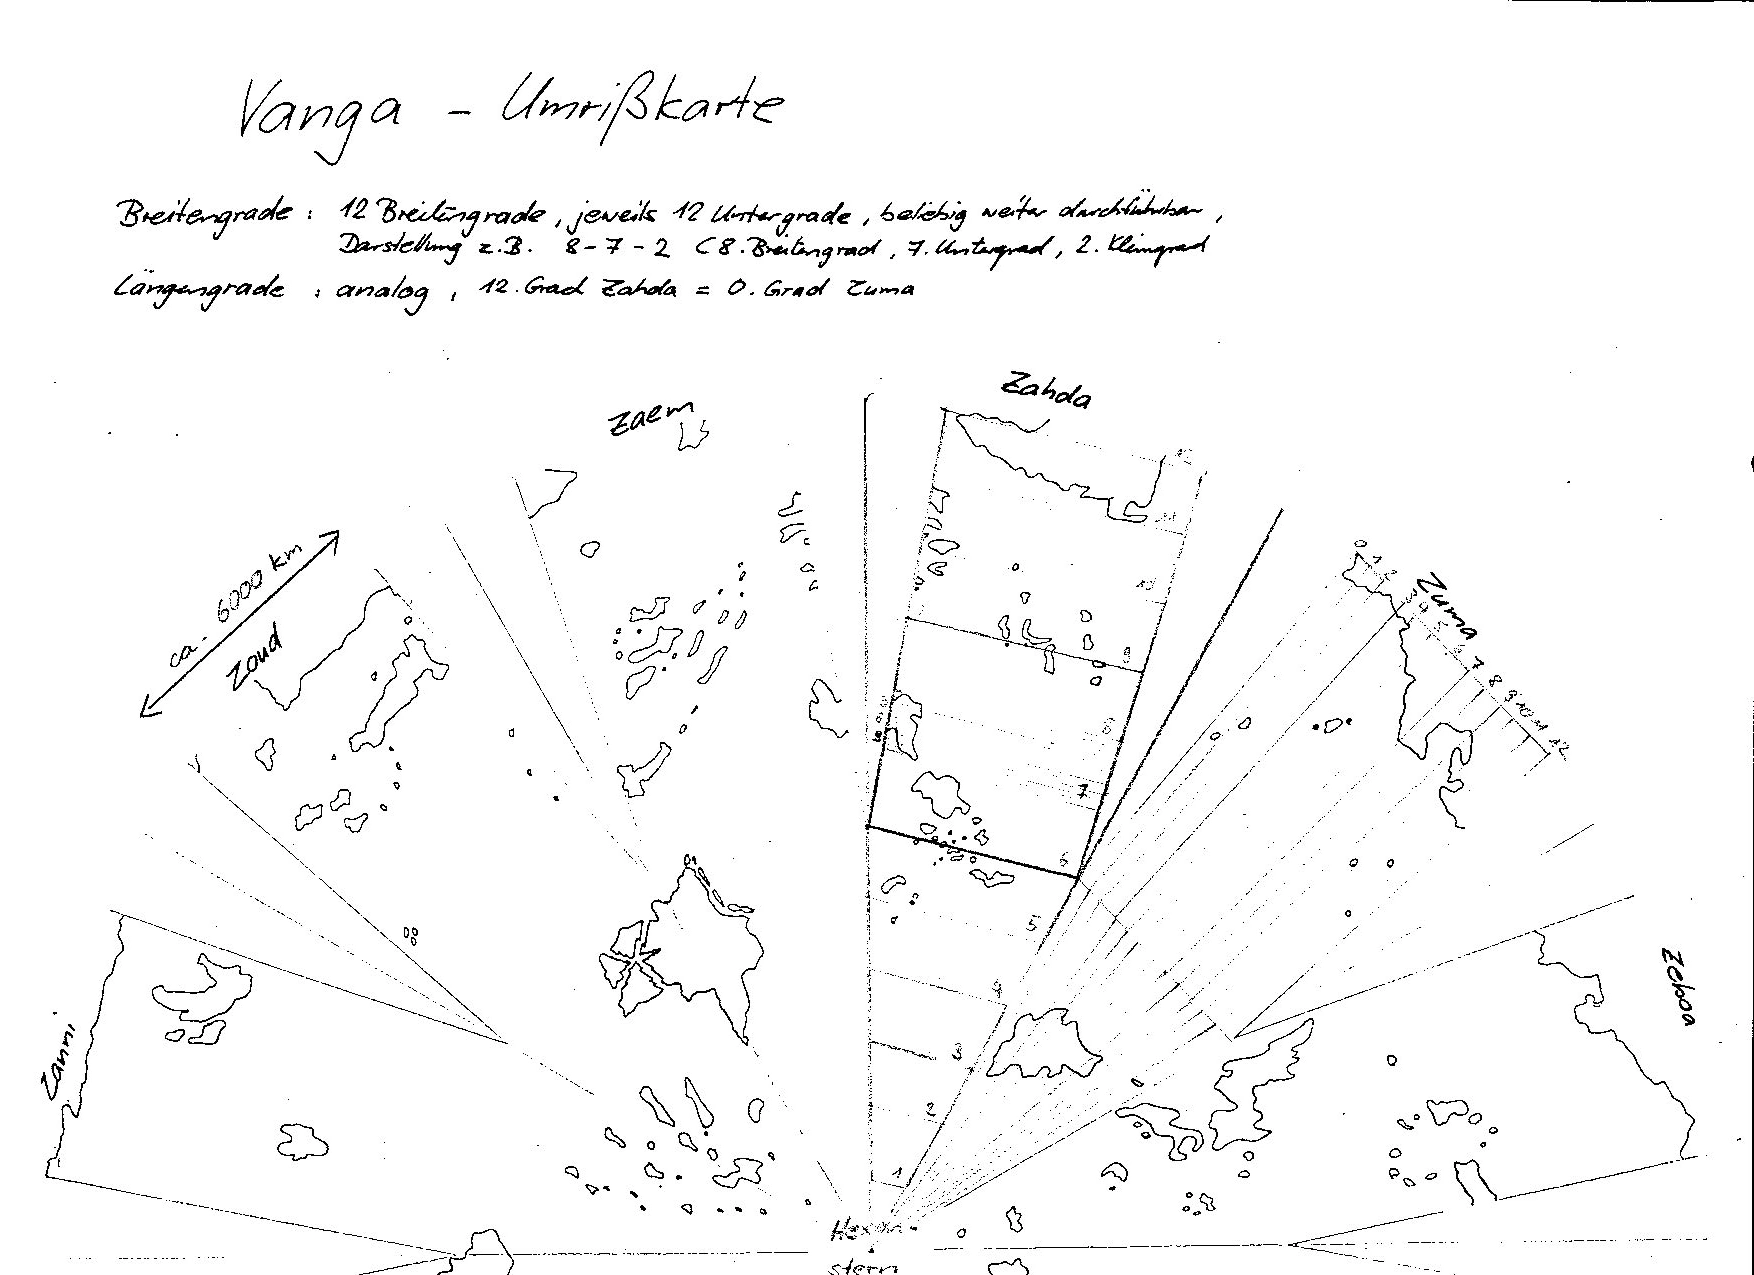 Vanga - Umrißkarte
Breitengrade : 12 Breitengrade, jeweils 12 Untergrade, beliebig weiter durchführbar,
Darstellung z.B. 8-7-2 (8. Breitengrad, 7. Untergrad, 2. Kleingrad
Längengrade : analog, 12. Grad Zahda = 0. Grad Zuma
Zahda
Zaem
12
11
10
9
8
7
6
5
4
3
2
1
ca. 6000 km
Zoud
Zuma
0 1 2 3 4 5 6 7 8 9 10 11 12
Zeboa
Zanni
Hexen-
stern